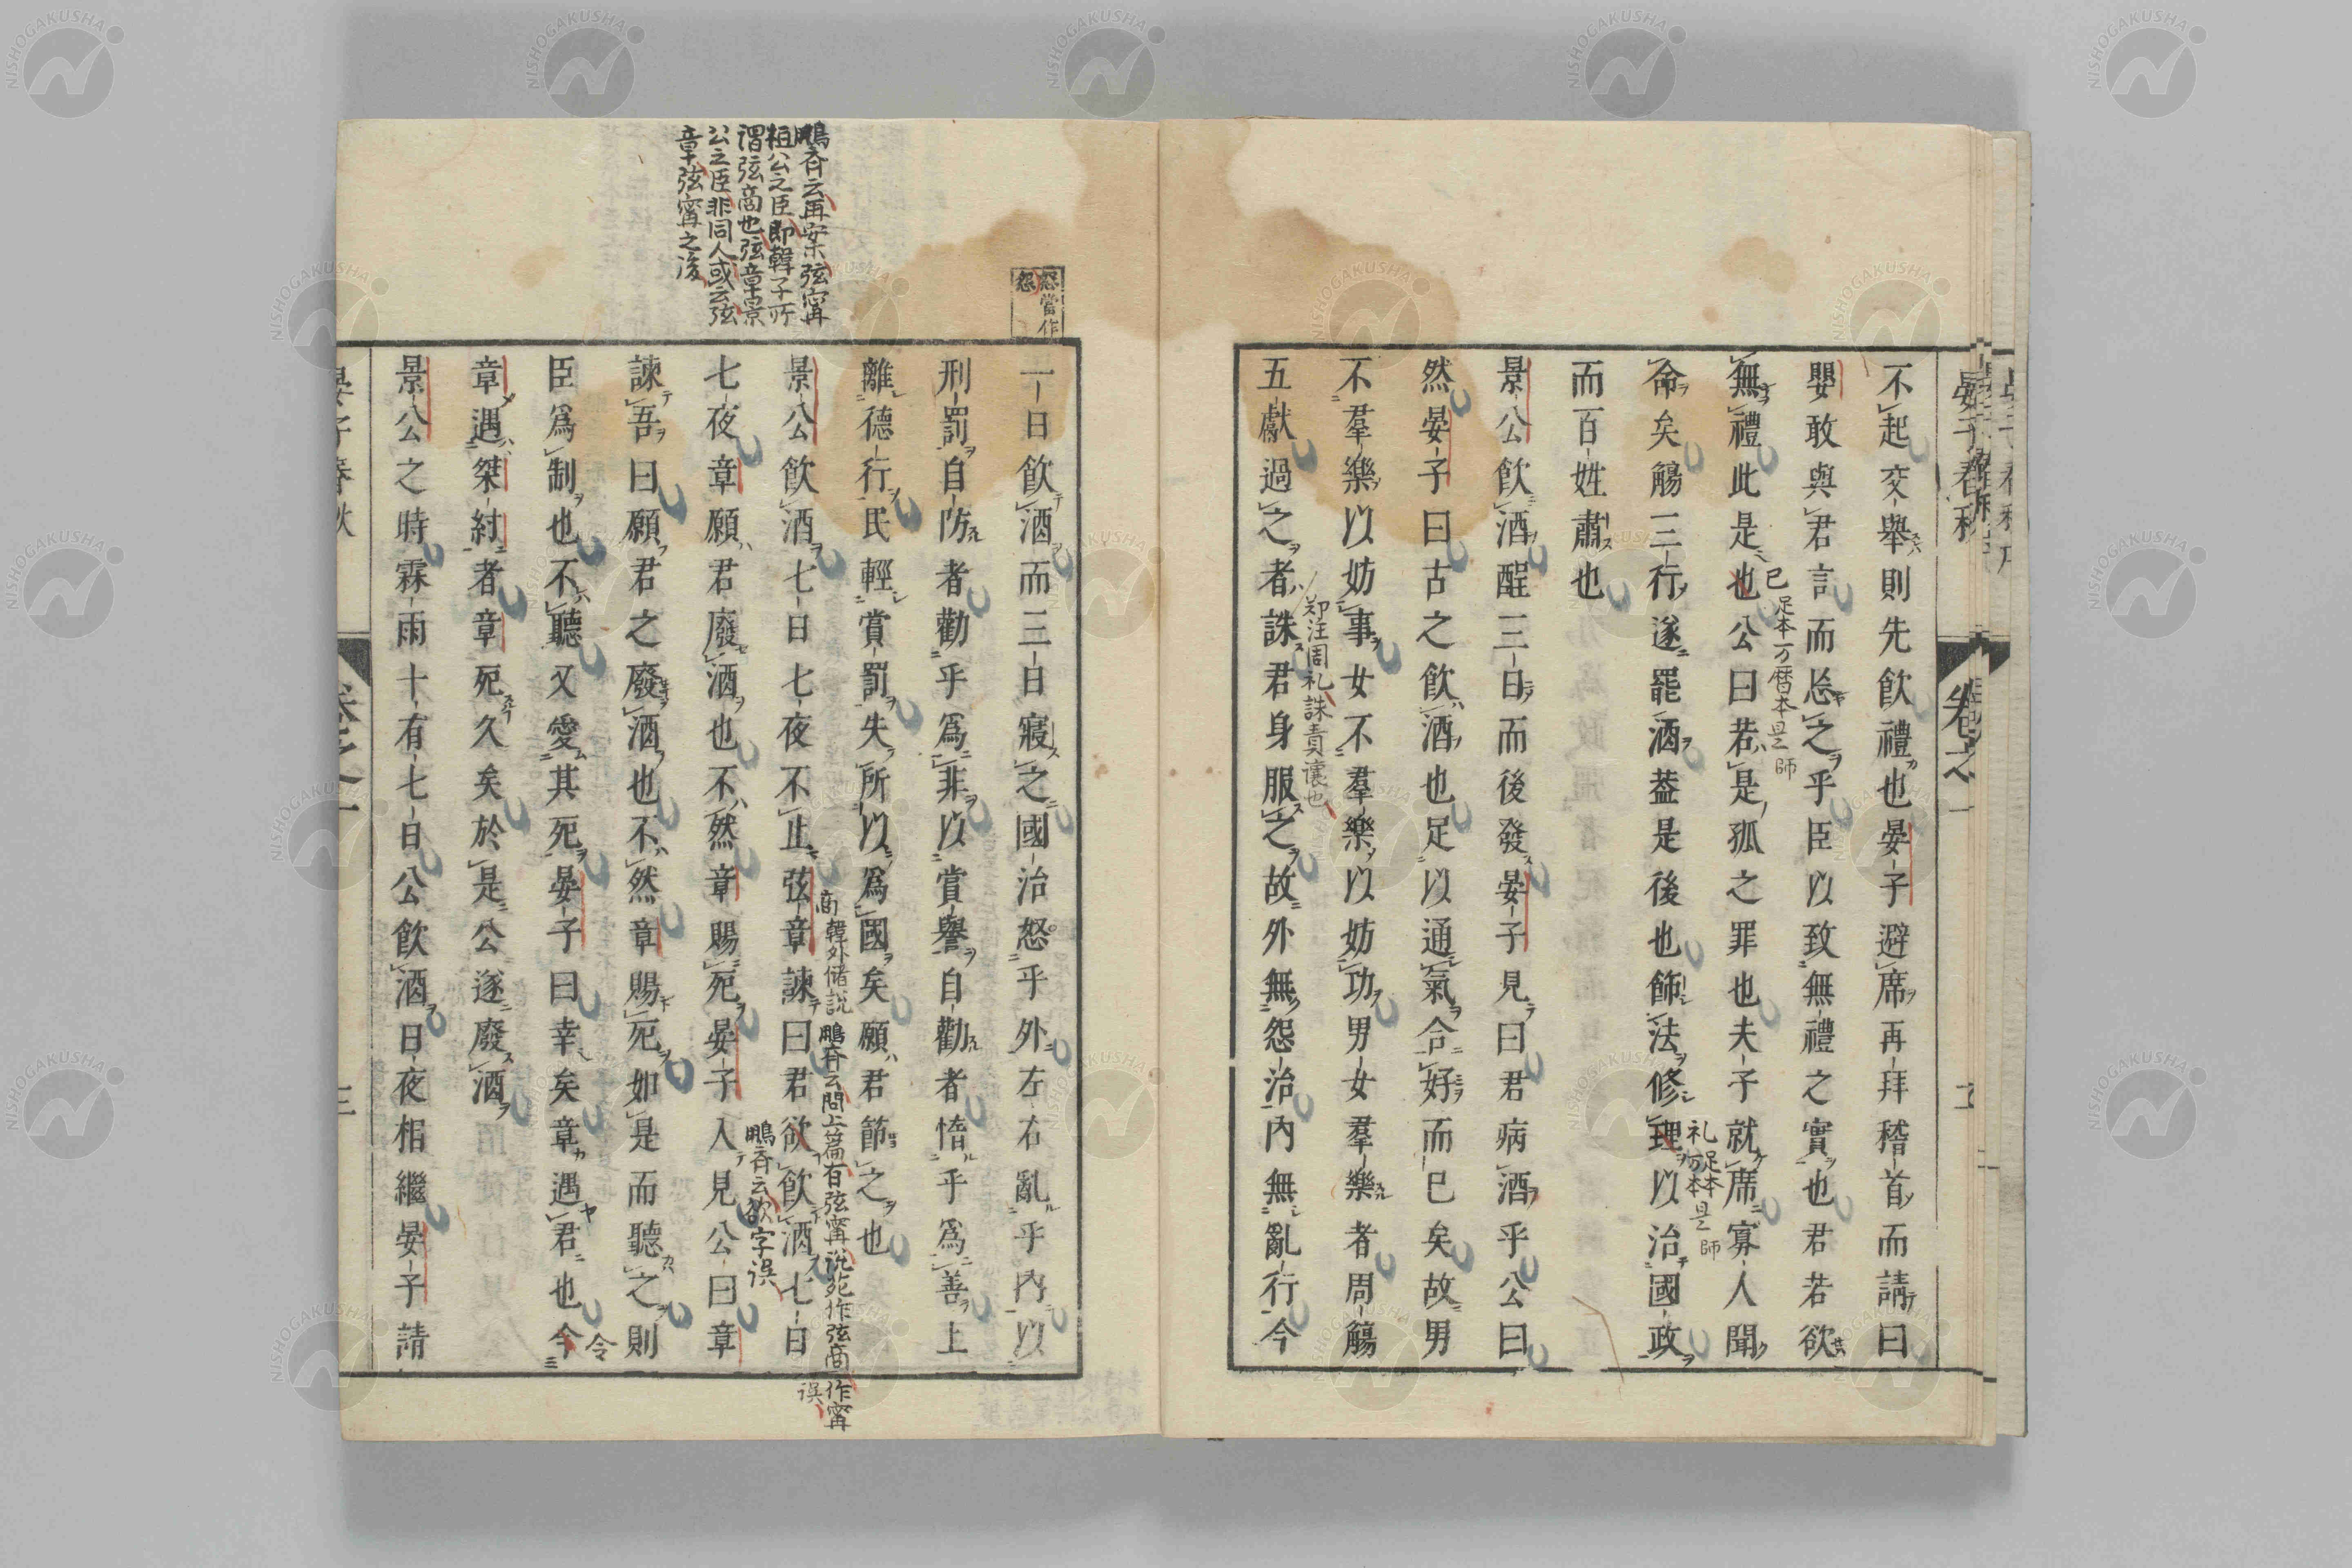 不起交舉則先飮禮也晏子避席再拜稽首而請曰
嬰敢與君言而忘之乎臣以致無禮之實也君若欲
無禮此是也公曰若是孤之罪也夫子就席寡人聞
命矣觴三行遂罷酒蓋是後也飾法修理以治國政
而百姓肅也
景公飮酒酲三日而後發晏子見曰君病酒乎公曰
然晏子曰古之飮酒也足以通氣合好而已矣故男
不羣樂以妨事女不羣樂以妨功男女羣樂者周觴
五獻過之者誅君身服之故外無怨治內無亂行今
已 足本万曆本是 師
礼 足本万本是 師
郑注周礼誅責讓也
晏子春秋
卷之一
怒當作怨
一日飮酒而三日寢之國治怒乎外左右亂乎內以
刑罰自防者勸乎爲非以賞譽自勸者惰乎爲善上
離德行民輕賞罰失所以爲國矣願君節之也
景公飮酒七日七夜不止弦章諫曰君欲飮酒七日
七夜章願君廢酒也不然章賜死晏子入見公曰章
諫吾曰願君之廢酒也不然章賜死如是而聽之則
臣爲制也不聽又愛其死晏子曰幸矣章遇君也今
章遇桀紂者章死久矣於是公遂廢酒
景公之時霖雨十有七日公飮酒日夜相繼晏子請
鵬斉云再案弦甯
桓公之臣即韓子所
謂弦商也弦章景
公之臣非同人或云弦
章弦甯之後
商 韓外儲説
鵬斉云問上篇有弦甯説苑作弦商一作甯
誤
鵬斉云欲字误
令
晏子春秋
卷之一
三
NISHOGAKUSHA